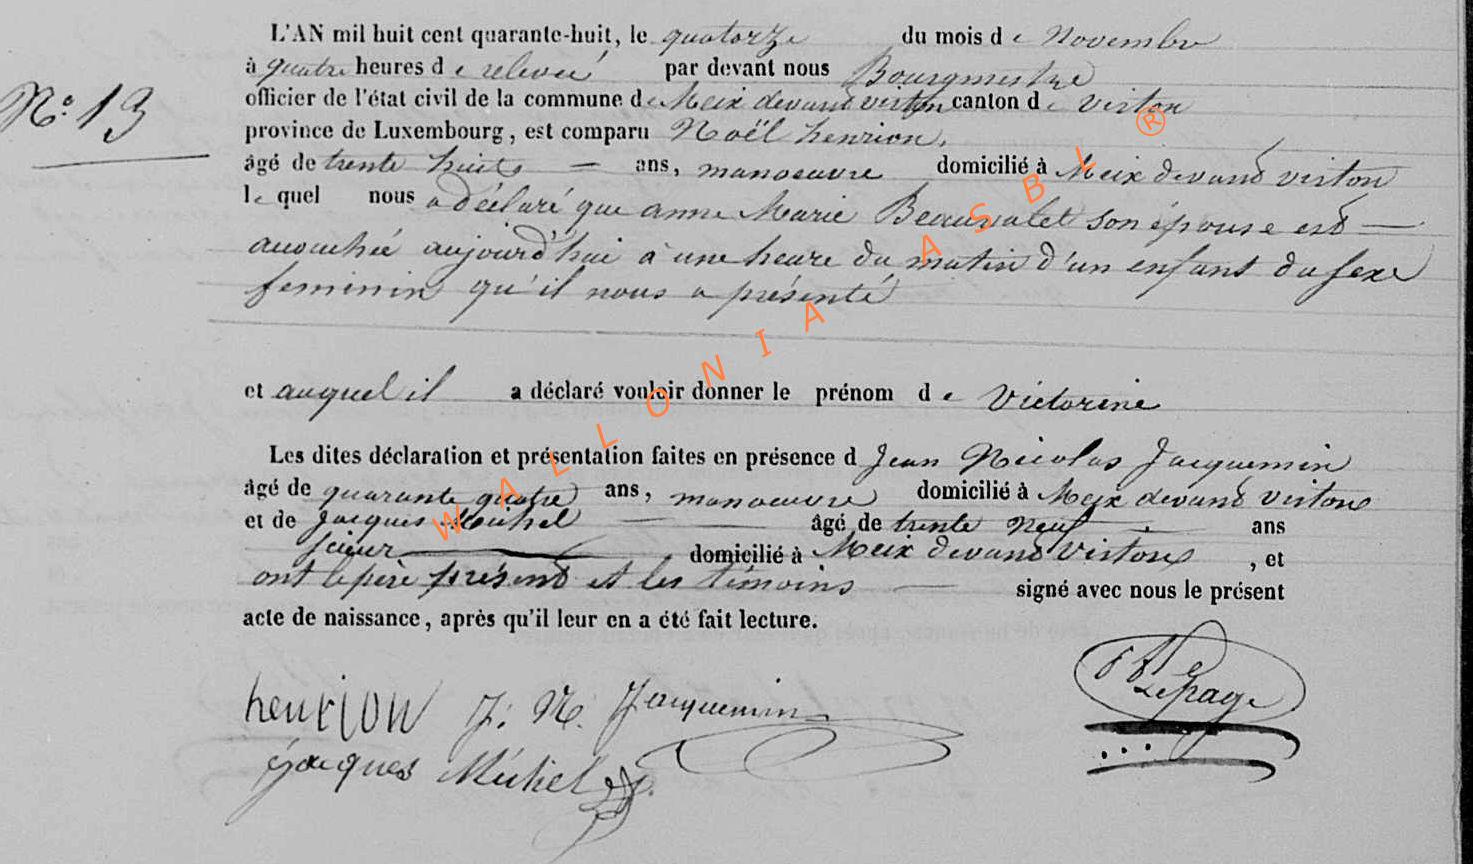 L'AN mil huit cent quarante-huit, le quatorze du mois de Novembre
à quatre heures de relevée par devant nous Bourgmestre
N.o 13
officier de l'état civil de la commune de Meix devant virton canton de virton
province de Luxembourg, est comparu Noël henrion,
âgé de trente huit — ans, manoeuvre domicilié à Meix devant virton
le quel nous a déclaré que anne Marie Beauvalet son épouse est —
accouchée aujourd'hui à une heure du matin d'un enfant du sexe
feminin qu'il nous a présenté
et auquel il a déclaré vouloir donner le prénom de Victorine
Les dites déclaration et présentation faites en présence d Jean Nicolas Jacquemin
âgé de quarante quatre ans, manoeuvre domicilié à Meix devant virton
et de Jacques Michel — âgé de trente neuf — ans
scieur — domicilié à Meix devant Virton, et
ont le père présent et les témoins — signé avec nous le présent
acte de naissance, après qu'il leur en a été fait lecture.
henrion J: N. Jacquemin Lepage
jacques Michel
WALLONIA ASBL ®